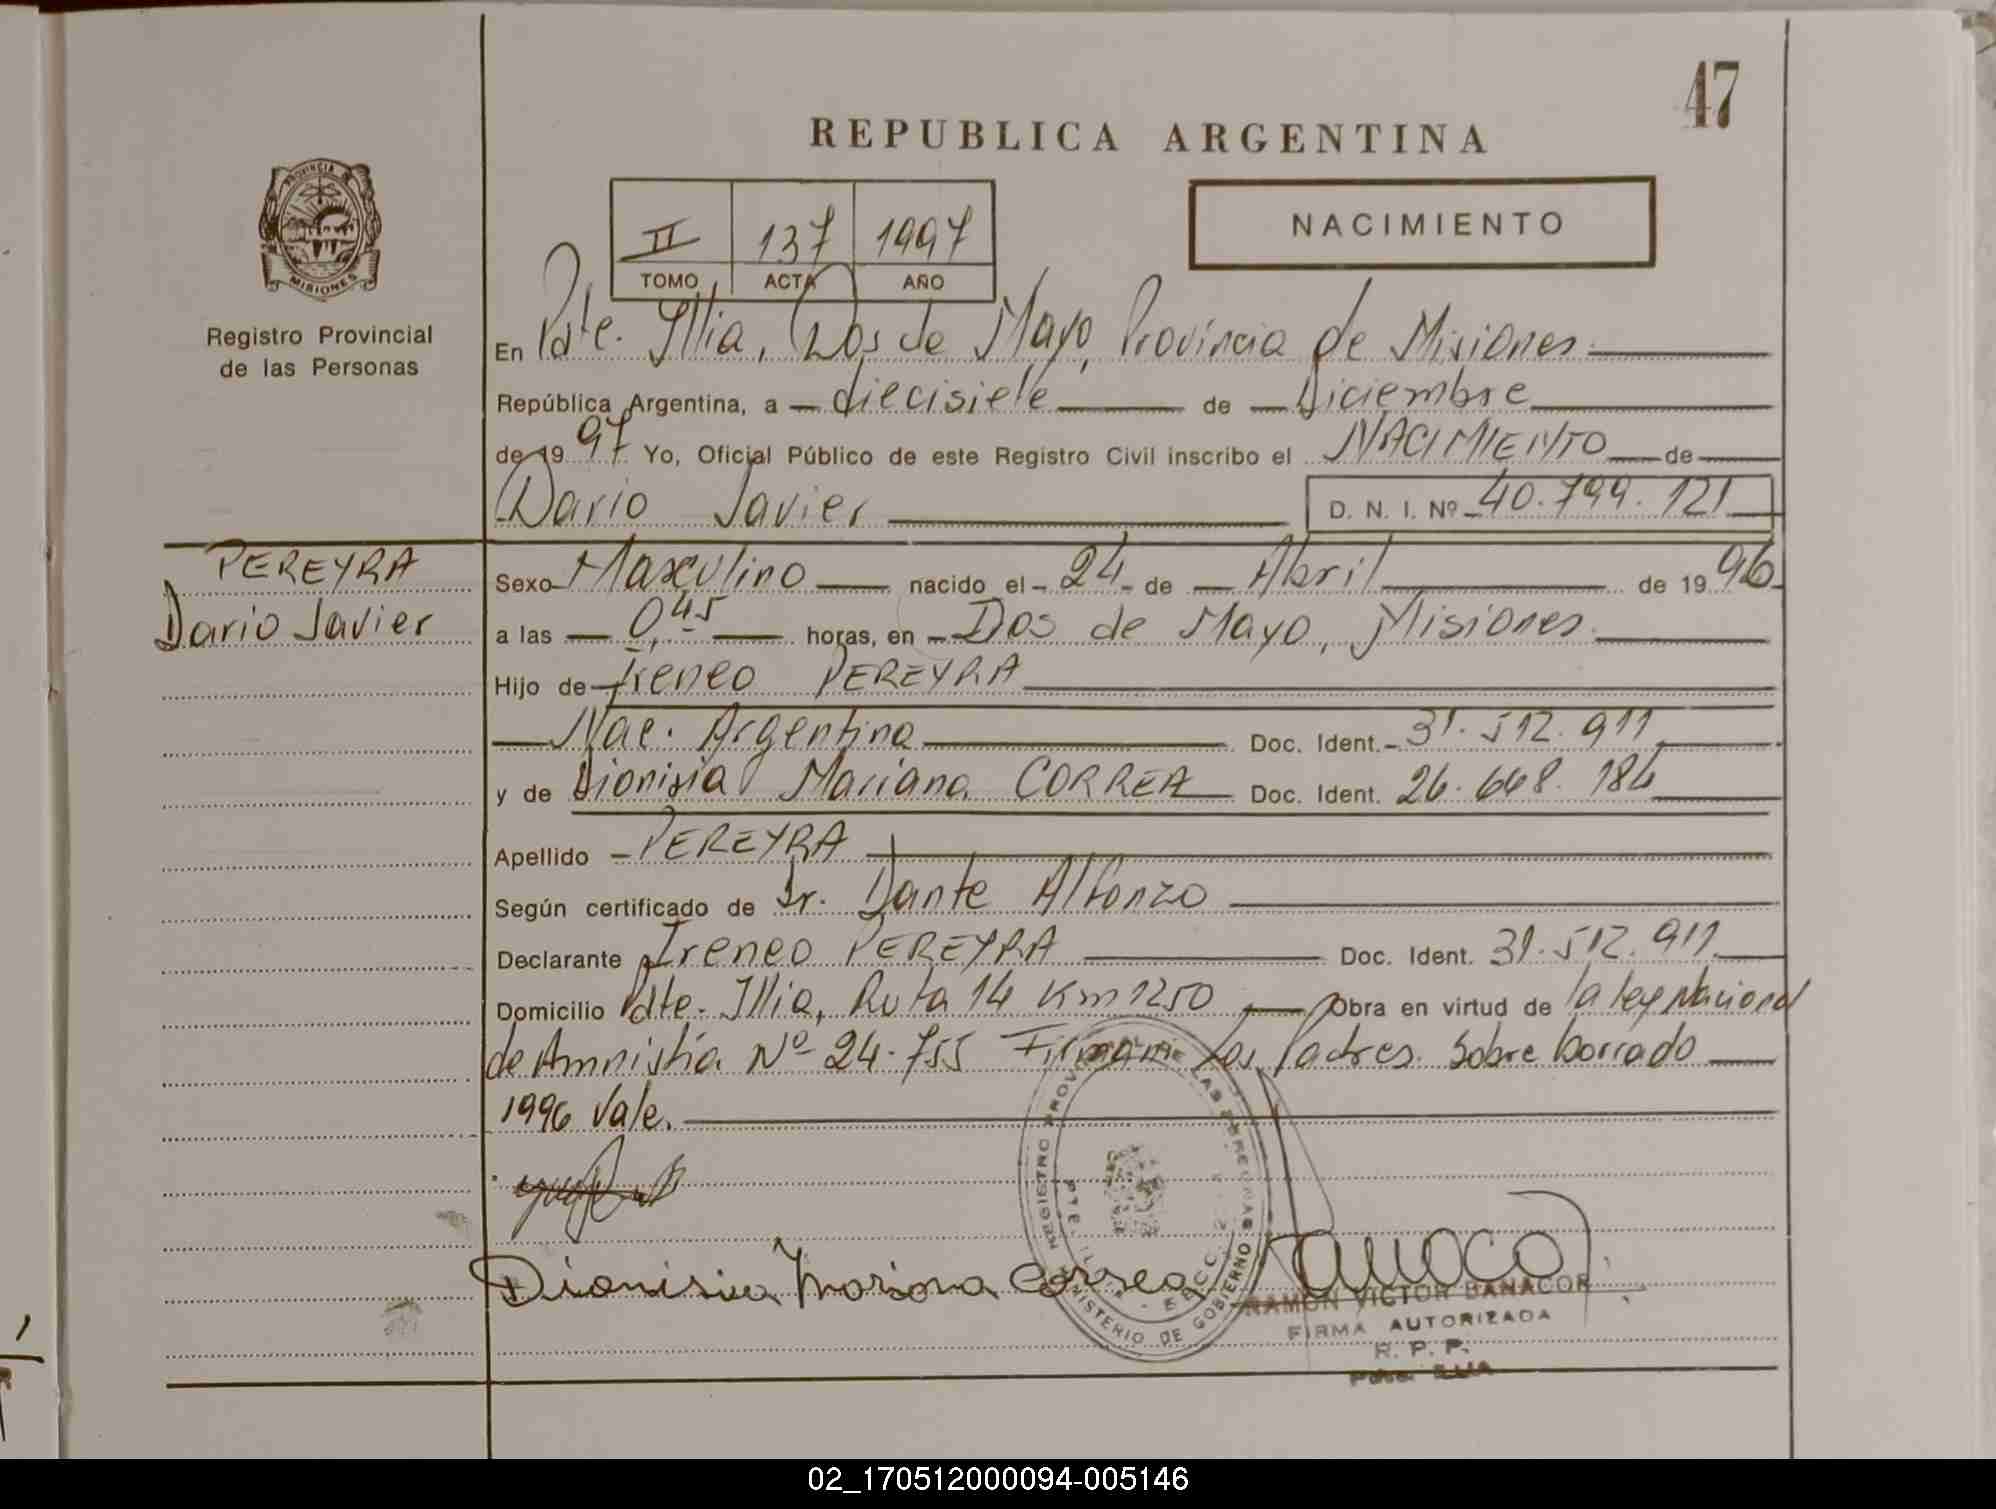 47
REPUBLICA ARGENTINA
NACIMIENTO
II 137 1997
TOMO ACTA AÑO
PROVINCIA DE
MISIONES
Registro Provincial
de las Personas
En Pdte. Illia, Dos de Mayo, Provincia de Misiones.
República Argentina, a diecisiete de Diciembre
de 19 97 Yo, Oficial Público de este Registro Civil inscribo el NACIMIENTO de
Dario Javier D. N. I. Nº 40.799.121
PEREYRA
Dario Javier
Sexo Masculino nacido el 24 de Abril de 19 96
a las 0,45 horas, en Dos de Mayo, Misiones.
Hijo de Ireneo PEREYRA
Nac. Argentina Doc. Ident. 31.512.911
y de Dionisia Mariana CORREA Doc. Ident. 26.668.184
Apellido PEREYRA
Según certificado de Dr. Dante Alfonzo
Declarante Ireneo PEREYRA Doc. Ident. 31.512.911
Domicilio Pdte. Illia, Ruta 14 Km 1250 Obra en virtud de la ley Nacional
de Amnistia Nº 24.755 Firman Los Padres. Sobre borrado
1996 Vale.
REGISTRO PROVINCIAL DE LAS PERSONAS
PTE. ILLIA
MINISTERIO DE GOBIERNO
Dionisia Mariana Correa
RAMON VICTOR BANACOR
FIRMA AUTORIZADA
R. P. P.
Pdte. Illia
02_170512000094-005146